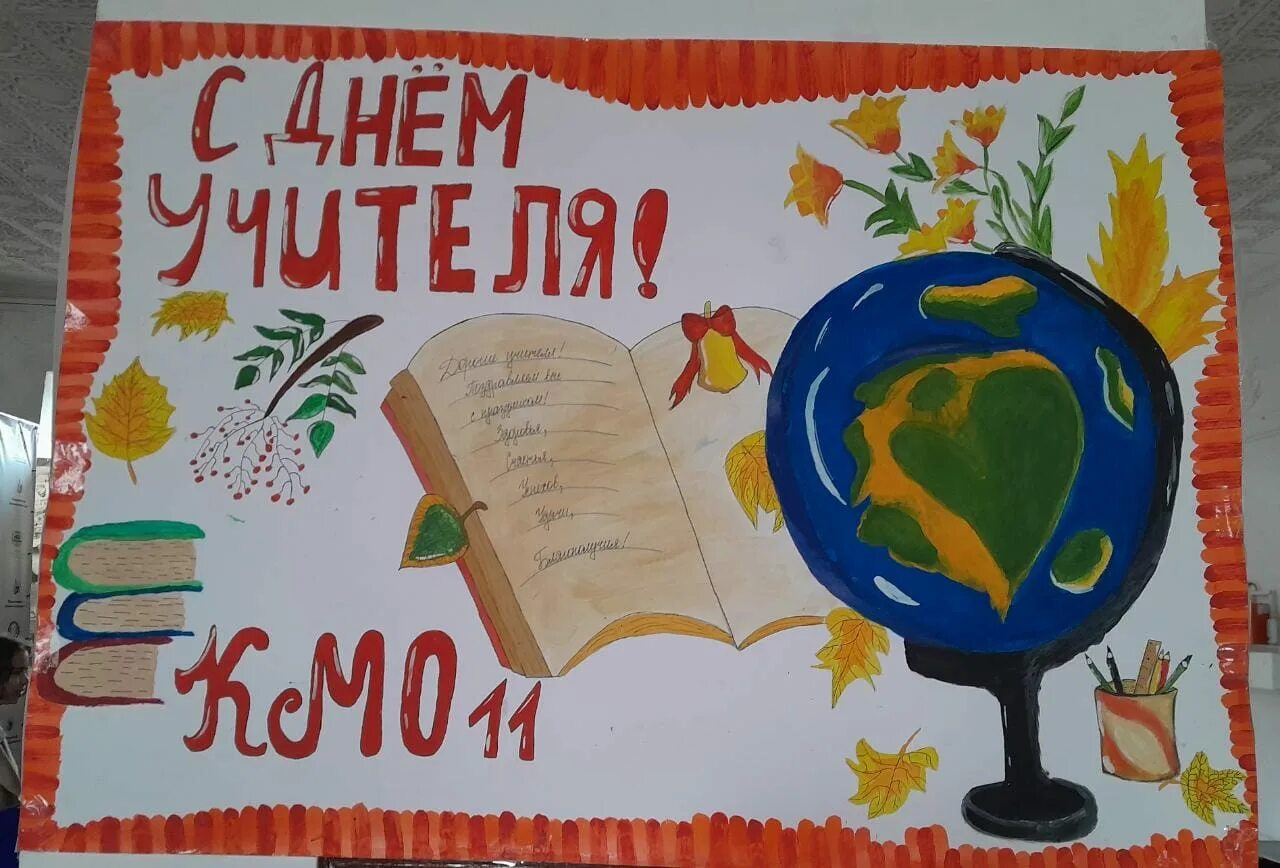 С ДНЁМ
УЧИТЕЛЯ!
Дорогие учителя!
Поздравляем вас
с праздником!
Здоровья,
Счастья,
Успехов,
Удачи,
Благополучия!
КМО 11